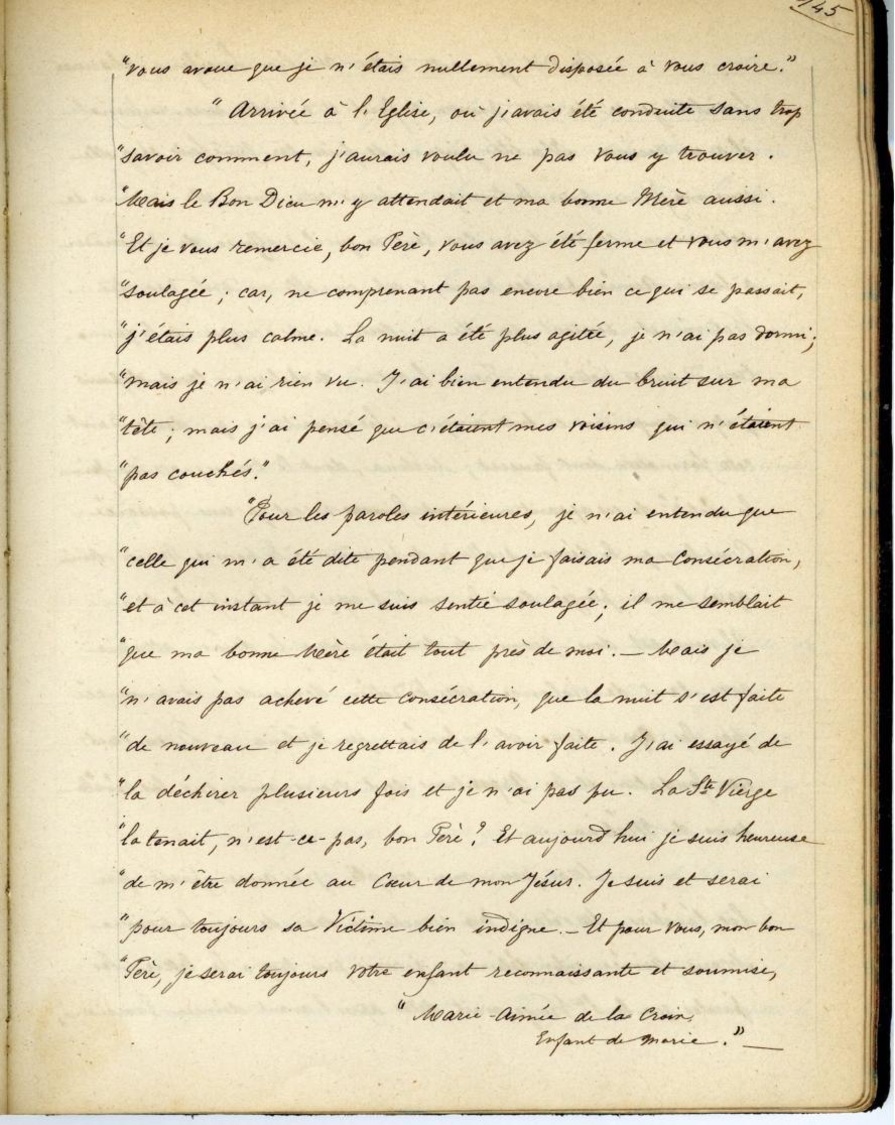 145
"vous avoue que je n'étais nullement disposée à vous croire."
"Arrivée à l'Eglise, où j'avais été conduite sans trop
"savoir comment, j'aurais voulu ne pas vous y trouver.
"Mais le Bon Dieu m'y attendait et ma bonne Mère aussi.
"Et je vous remercie, bon Père, vous avez été ferme et vous m'avez
"soulagée; car, ne comprenant pas encore bien ce qui se passait,
"j'étais plus calme. La nuit a été plus agitée, je n'ai pas dormi;
"mais je n'ai rien vu. J'ai bien entendu du bruit sur ma
"tête; mais j'ai pensé que c'étaient mes voisins qui n'étaient
"pas couchés."
"Pour les paroles intérieures, je n'ai entendu que
"celle qui m'a été dite pendant que je faisais ma Consécration,
"et à cet instant je me suis sentie soulagée; il me semblait
"que ma bonne Mère était tout près de moi. — Mais je
"n'avais pas achevé cette consécration, que la nuit s'est faite
"de nouveau et je regrettais de l'avoir faite. J'ai essayé de
"la déchirer plusieurs fois et je n'ai pas pu. La Ste Vierge
"la tenait, n'est-ce-pas, bon Père? Et aujourd'hui je suis heureuse
"de m'être donnée au Cœur de mon Jésus. Je suis et serai
"pour toujours sa Victime bien indigne. — Et pour vous, mon bon
"Père, je serai toujours votre enfant reconnaissante et soumise,
"Marie-Aimée de la Croix,
Enfant de Marie."—